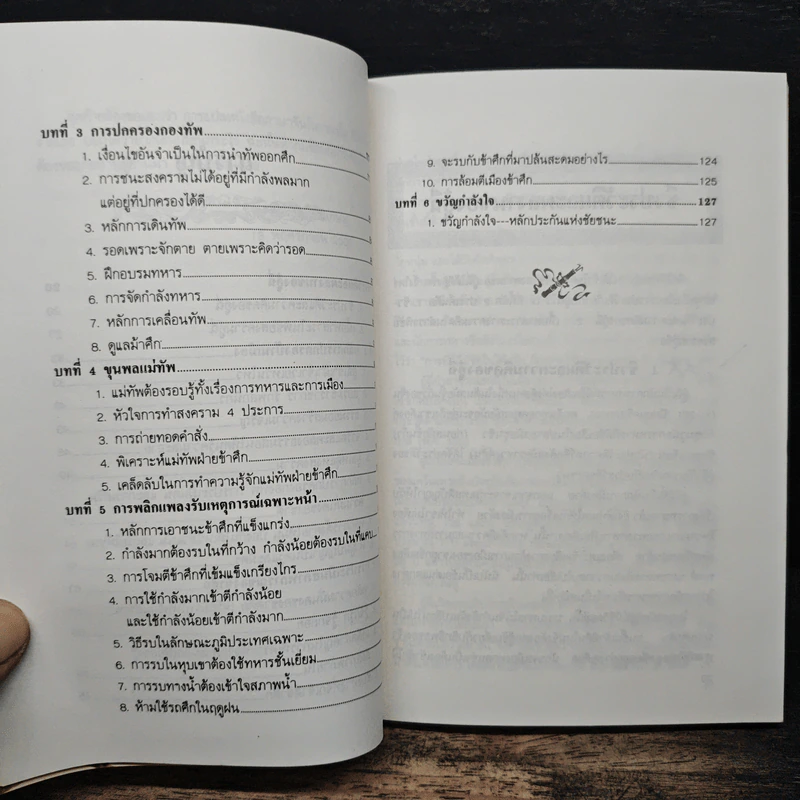 บทที่ 3 การปกครองกองทัพ
1. เงื่อนไขอันจำเป็นในการนำทัพออกศึก
2. การชนะสงครามไม่ได้อยู่ที่มีกำลังพลมาก
แต่อยู่ที่ปกครองได้ดี
3. หลักการเดินทัพ
4. รอดเพราะจักตาย ตายเพราะคิดว่ารอด
5. ฝึกอบรมทหาร
6. การจัดกำลังทหาร
7. หลักการเคลื่อนทัพ
8. ดูแลม้าศึก
บทที่ 4 ขุนพลแม่ทัพ
1. แม่ทัพต้องรอบรู้ทั้งเรื่องการทหารและการเมือง
2. หัวใจการทำสงคราม 4 ประการ
3. การถ่ายทอดคำสั่ง
4. พิเคราะห์แม่ทัพฝ่ายข้าศึก
5. เคล็ดลับในการทำความรู้จักแม่ทัพฝ่ายข้าศึก
บทที่ 5 การพลิกแพลงรับเหตุการณ์เฉพาะหน้า
1. หลักการเอาชนะข้าศึกที่แข็งแกร่ง
2. กำลังมากต้องรบในที่กว้าง กำลังน้อยต้องรบในที่แคบ
3. การโจมตีข้าศึกที่เข้มแข็งเกรียงไกร
4. การใช้กำลังมากเข้าตีกำลังน้อย
และใช้กำลังน้อยเข้าตีกำลังมาก
5. วิธีรบในลักษณะภูมิประเทศเฉพาะ
6. การรบในหุบเขาต้องใช้ทหารชั้นเยี่ยม
7. การรบทางน้ำต้องเข้าใจสภาพน้ำ
8. ห้ามใช้รถศึกในฤดูฝน
9. จะรบกับข้าศึกที่มาปล้นสะดมอย่างไร 124
10. การล้อมตีเมืองข้าศึก 125
บทที่ 6 ขวัญกำลังใจ 127
1. ขวัญกำลังใจ---หลักประกันแห่งชัยชนะ 127